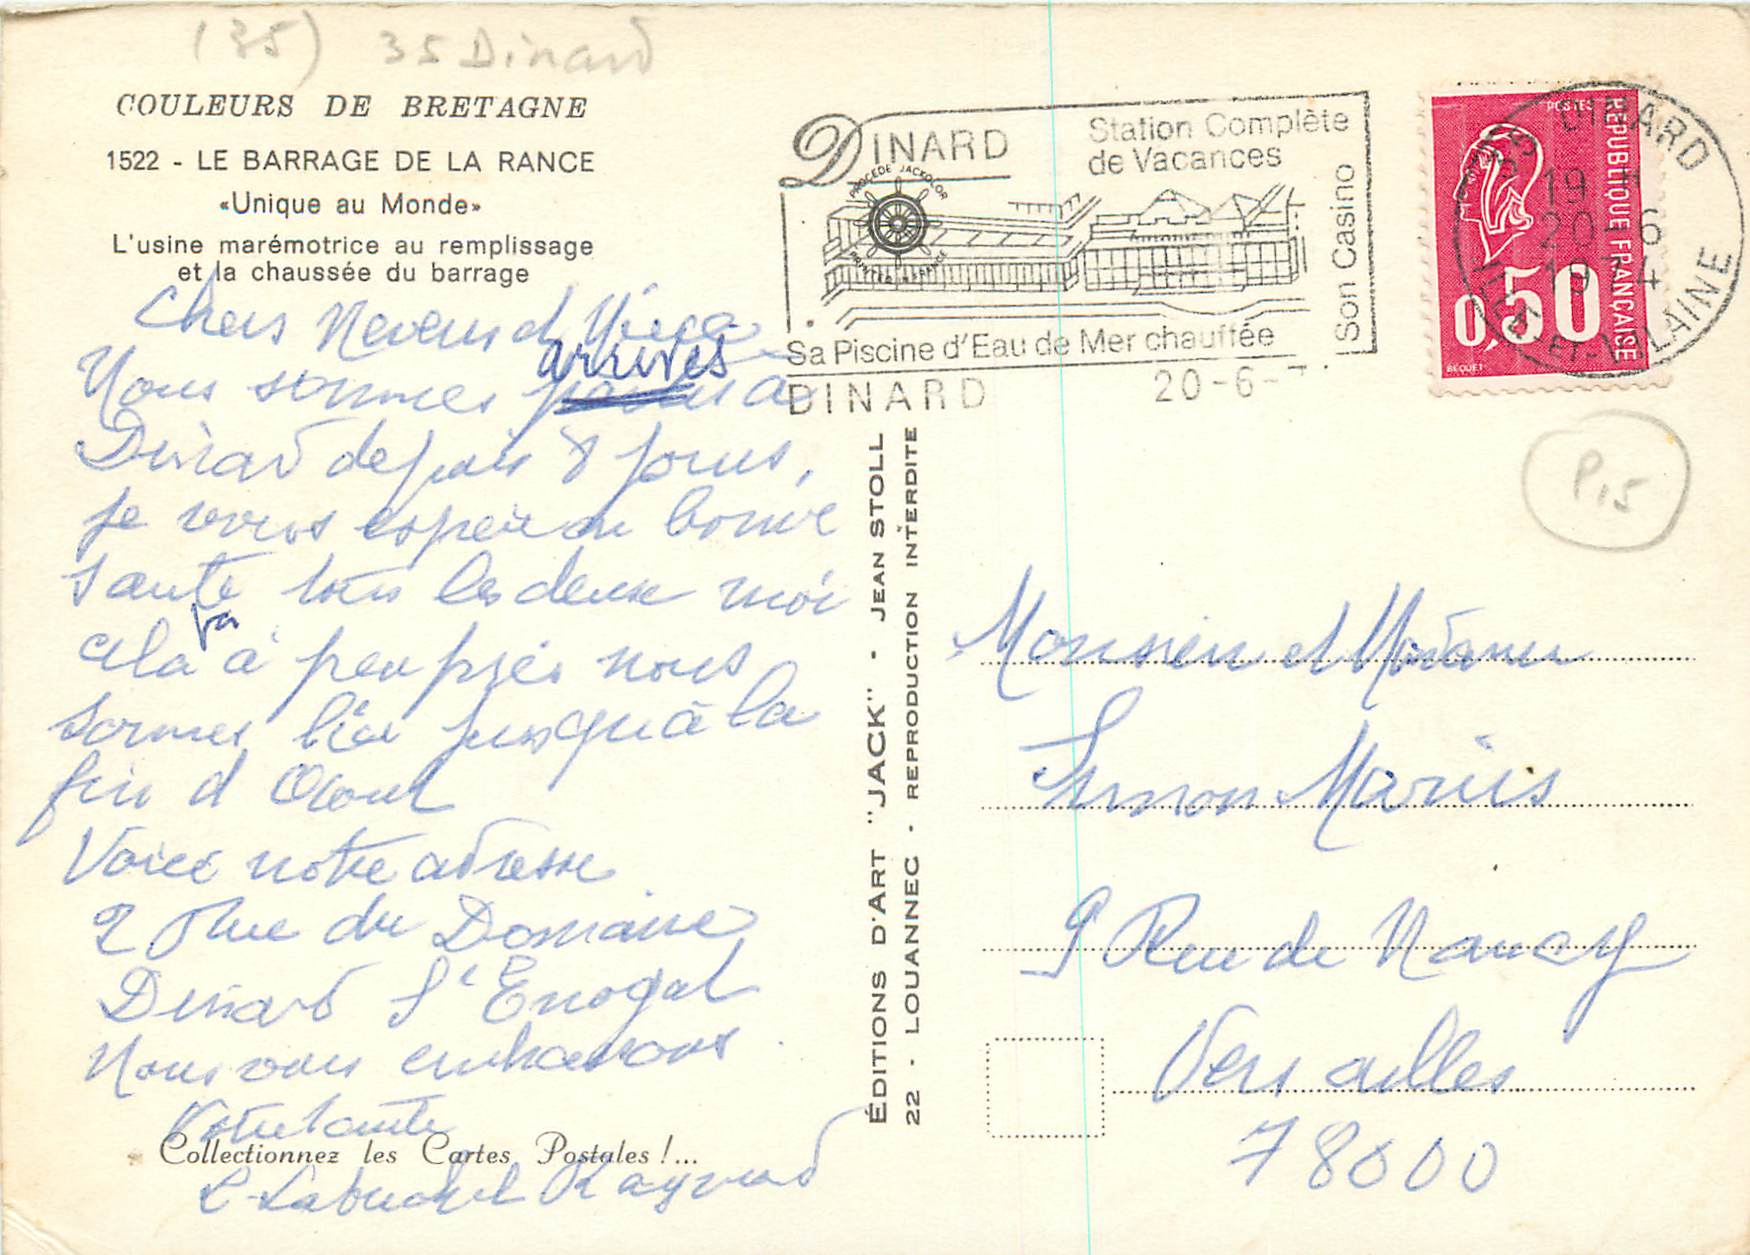 (35) 35 Dinard
COULEURS DE BRETAGNE
1522 - LE BARRAGE DE LA RANCE
«Unique au Monde»
L'usine marémotrice au remplissage
et la chaussée du barrage
Chers Neveus et Nièce
Nous sommes arrives a
Dinard depuis 8 jours,
je vous espère en bonne
santé tous les deux moi
cela va à peu près nous
sommes ici jusqu'à la
fin d Aout
Voice notre adresse
2 Rue du Domaine
Dinard St Enogat
Nous vous embrassons
Votre tante
Collectionnez les Cartes Postales !...
Raymond
ÉDITIONS D'ART "JACK" - JEAN STOLL
22 - LOUANNEC - REPRODUCTION INTERDITE
DINARD
Station Complète
de Vacances
Son Casino
PROCEDE JACKOLOR
PRINTED IN FRANCE
Sa Piscine d'Eau de Mer chauffée
DINARD 20-6-7
POSTES
REPUBLIQUE FRANÇAISE
0,50
BEQUET
35 DINARD
19 H
20-6
1974
ILLE-ET-VILAINE
P15
Monsieur et Madame
Simon Marius
9 Rue de Nancy
Versailles
78000